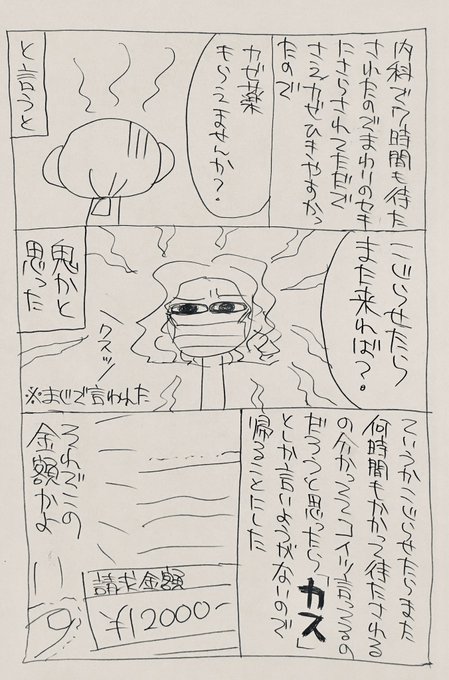 内科で7時間も待た
されたのでまわりのセキ
にさらされてただで
さえカゼひきやすかっ
たので
カゼ薬
もらえませんか?
と言うと
こじらせたら
また来れば?
クスッ
鬼かと
思った
※まじで言われた
ていうかこじらせたらまた
何時間もかかって待たされる
の分かっててコイツ言ってるの
だろうと思ったら「カス」
としか言いようがないので
帰ることにした
請求金額
¥12000-
それでこの
金額かよ